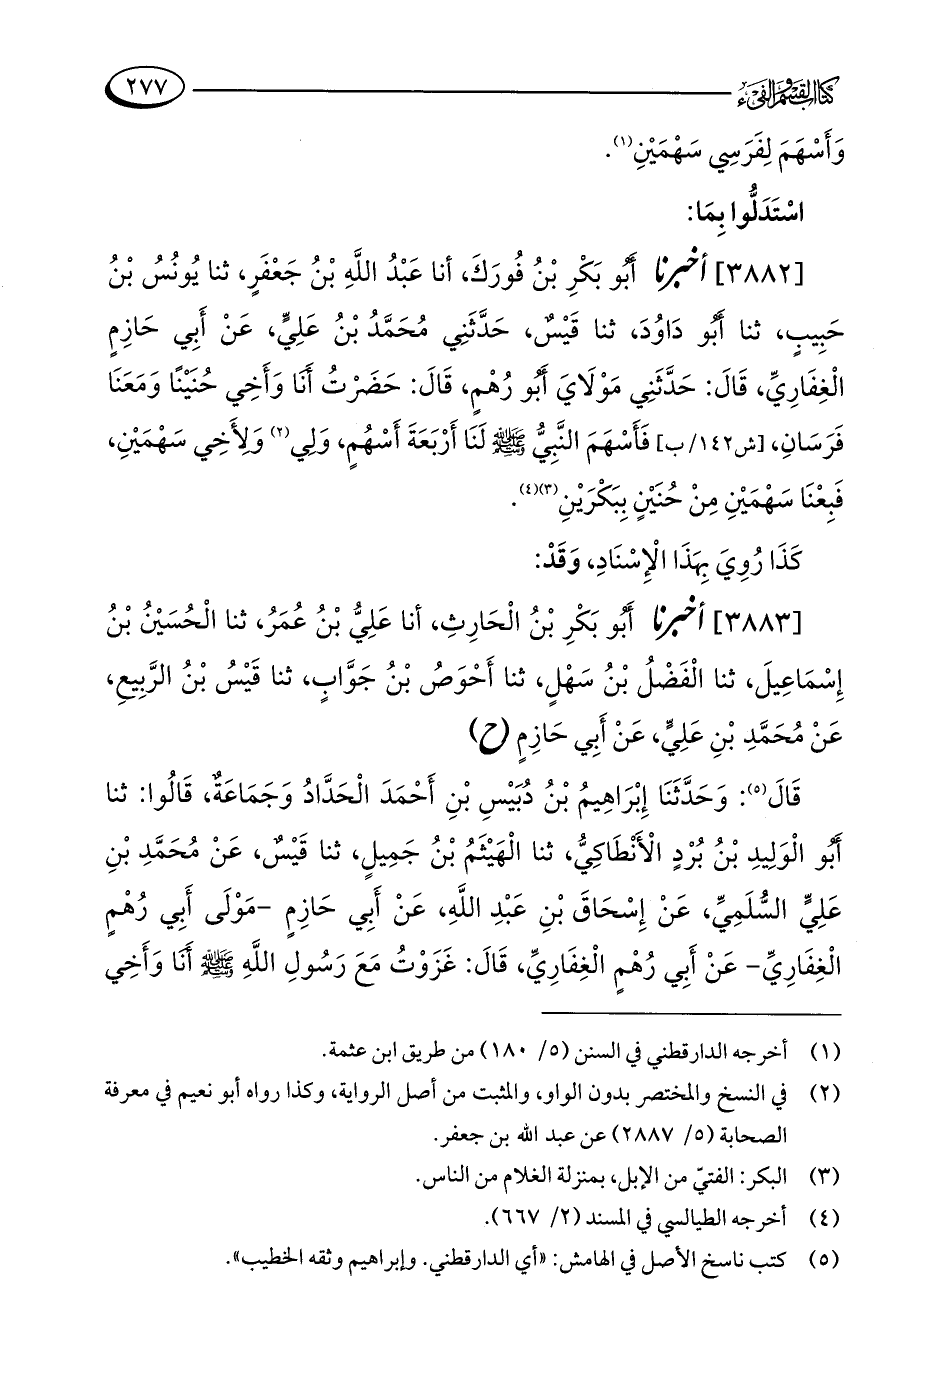 كتاب القسم والفيء ٢٧٧
وَأَسْهَمَ لِفَرَسِي سَهْمَيْنِ(١).
اسْتَدَلُّوا بِمَا:
[٣٨٨٢] أخبرنا أَبُو بَكْرِ بْنُ فُورَكَ، أنا عَبْدُ اللَّهِ بْنُ جَعْفَرٍ، ثنا يُونُسُ بْنُ
حَبِيبٍ، ثنا أَبُو دَاوُدَ، ثنا قَيْسٌ، حَدَّثَنِي مُحَمَّدُ بْنُ عَلِيٍّ، عَنْ أَبِي حَازِمٍ
الْغِفَارِيِّ، قَالَ: حَدَّثَنِي مَوْلَايَ أَبُو رُهْمٍ، قَالَ: حَضَرْتُ أَنَا وَأَخِي حُنَيْنًا وَمَعَنَا
فَرَسَانِ، [ش١٤٢/ب] فَأَسْهَمَ النَّبِيُّ ﷺ لَنَا أَرْبَعَةَ أَسْهُمٍ، وَلِي(٢) وَلِأَخِي سَهْمَيْنِ،
فَبِعْنَا سَهْمَيْنِ مِنْ حُنَيْنٍ بِبَكْرَيْنِ(٣)(٤).
كَذَا رُوِيَ بِهَذَا الْإِسْنَادِ، وَقَدْ:
[٣٨٨٣] أخبرنا أَبُو بَكْرِ بْنُ الْحَارِثِ، أنا عَلِيُّ بْنُ عُمَرُ، ثنا الْحُسَيْنُ بْنُ
إِسْمَاعِيلَ، ثنا الْفَضْلُ بْنُ سَهْلٍ، ثنا أَحْوَصُ بْنُ جَوَّابٍ، ثنا قَيْسُ بْنُ الرَّبِيعِ،
عَنْ مُحَمَّدِ بْنِ عَلِيٍّ، عَنْ أَبِي حَازِمٍ (ح)
قَالَ(٥): وَحَدَّثَنَا إِبْرَاهِيمُ بْنُ دُبَيْسِ بْنِ أَحْمَدَ الْحَدَّادُ وَجَمَاعَةٌ، قَالُوا: ثنا
أَبُو الْوَلِيدِ بْنُ بُرْدٍ الْأَنْطَاكِيُّ، ثنا الْهَيْثَمُ بْنُ جَمِيلٍ، ثنا قَيْسٌ، عَنْ مُحَمَّدِ بْنِ
عَلِيٍّ السُّلَمِيِّ، عَنْ إِسْحَاقَ بْنِ عَبْدِ اللَّهِ، عَنْ أَبِي حَازِمٍ -مَوْلَى أَبِي رُهْمٍ
الْغِفَارِيِّ- عَنْ أَبِي رُهْمٍ الْغِفَارِيِّ، قَالَ: غَزَوْتُ مَعَ رَسُولِ اللَّهِ ﷺ أَنَا وَأَخِي
(١) أخرجه الدارقطني في السنن (٥/ ١٨٠) من طريق ابن عثمة.
(٢) في النسخ والمختصر بدون الواو، والمثبت من أصل الرواية، وكذا رواه أبو نعيم في معرفة
الصحابة (٥/ ٢٨٨٧) عن عبد الله بن جعفر.
(٣) البكر: الفتيّ من الإبل، بمنزلة الغلام من الناس.
(٤) أخرجه الطيالسي في المسند (٢/ ٦٦٧).
(٥) كتب ناسخ الأصل في الهامش: «أي الدارقطني. وإبراهيم وثقه الخطيب».